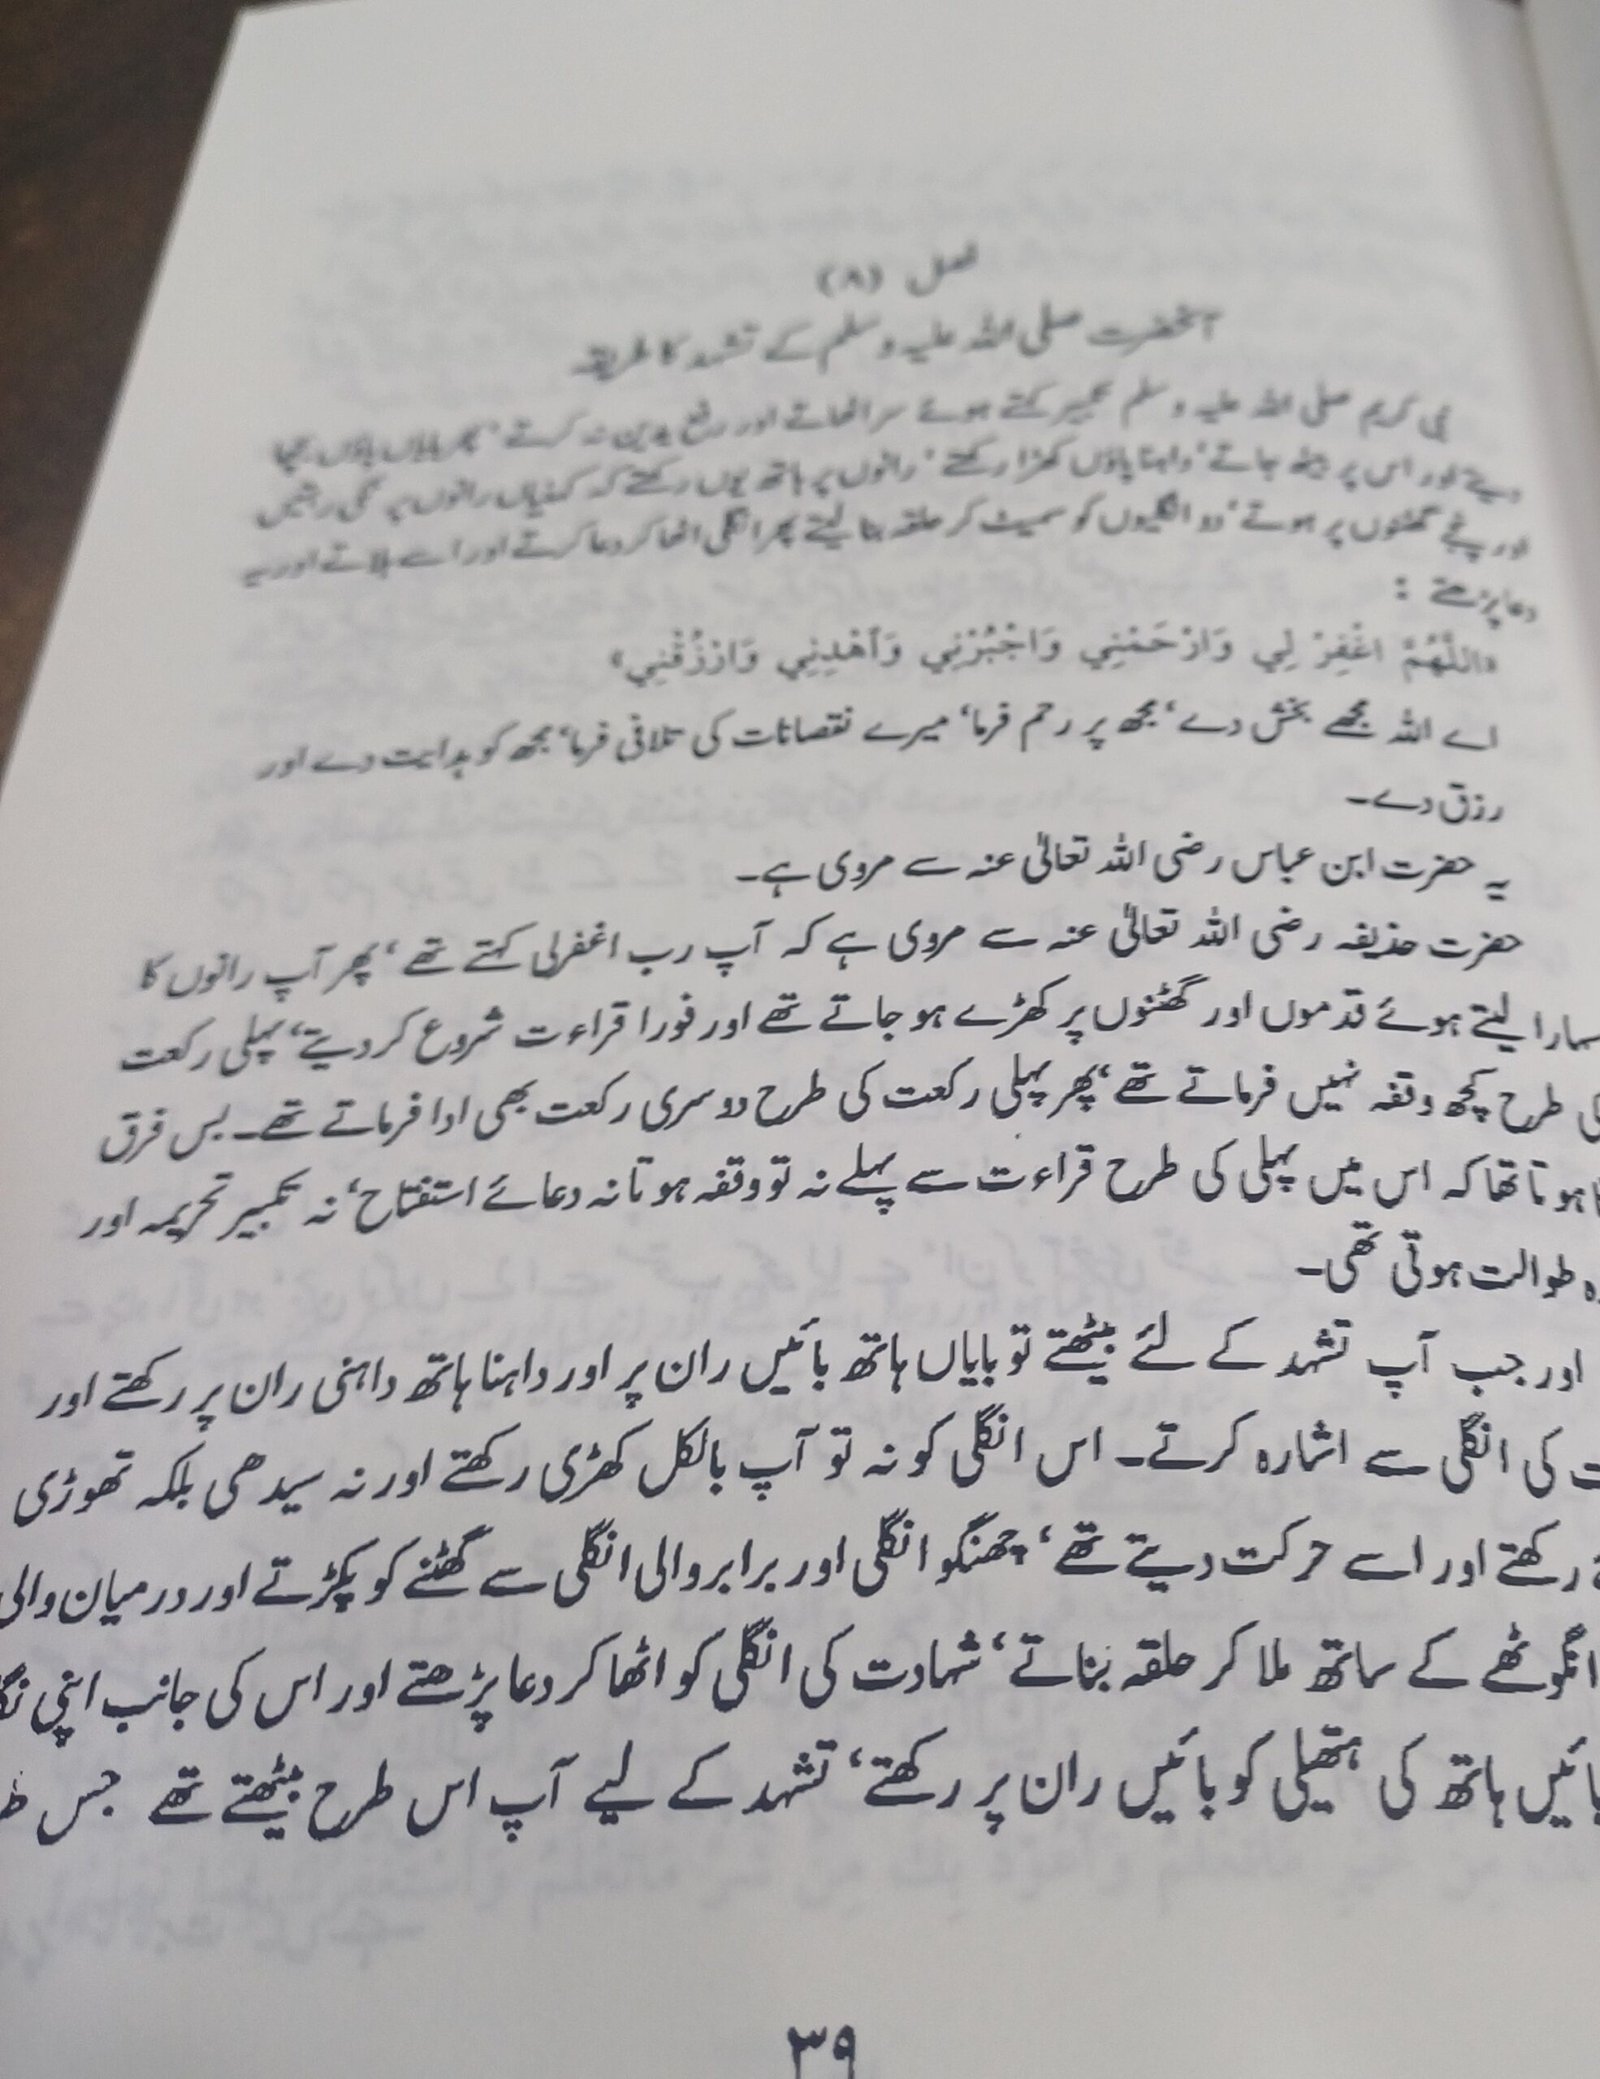 فصل (۸)
آنحضرت صلی اللہ علیہ و سلم کے تشہد کا طریقہ
نبی کریم صلی اللہ علیہ و سلم تکبیر کہتے ہوئے سر اٹھاتے اور رفع یدین نہ کرتے‘ پھر بایاں پاؤں بچھا
دیتے اور اس پر بیٹھ جاتے‘ داہنا پاؤں کھڑا رکھتے‘ رانوں پر ہاتھ یوں رکھتے کہ کہنیاں رانوں پر ٹکی رہتیں
اور پنجے گھٹنوں پر ہوتے‘ دو انگلیوں کو سمیٹ کر حلقہ بنا لیتے پھر انگلی اٹھا کر دعا کرتے اور اسے ہلاتے اور یہ
دعا پڑھتے :
«اللَّهُمَّ اغْفِرْ لِي وَارْحَمْنِي وَاجْبُرْنِي وَاهْدِنِي وَارْزُقْنِي»
اے اللہ مجھے بخش دے‘ مجھ پر رحم فرما‘ میرے نقصانات کی تلافی فرما‘ مجھ کو ہدایت دے اور
رزق دے۔
یہ حضرت ابن عباس رضی اللہ تعالیٰ عنہ سے مروی ہے۔
حضرت حذیفہ رضی اللہ تعالیٰ عنہ سے مروی ہے کہ آپ رب اغفرلی کہتے تھے‘ پھر آپ رانوں کا
سہارا لیتے ہوئے قدموں اور گھٹنوں پر کھڑے ہو جاتے تھے اور فورا قراءت شروع کر دیتے‘ پہلی رکعت
کی طرح کچھ وقفہ نہیں فرماتے تھے‘ پھر پہلی رکعت کی طرح دوسری رکعت بھی ادا فرماتے تھے۔ بس فرق
ہوتا تھا کہ اس میں پہلی کی طرح قراءت سے پہلے نہ تو وقفہ ہوتا نہ دعائے استفتاح‘ نہ تکبیر تحریمہ اور
طوالت ہوتی تھی۔
اور جب آپ تشہد کے لئے بیٹھتے تو بایاں ہاتھ بائیں ران پر اور داہنا ہاتھ داہنی ران پر رکھتے اور
کی انگلی سے اشارہ کرتے۔ اس انگلی کو نہ تو آپ بالکل کھڑی رکھتے اور نہ سیدھی بلکہ تھوڑی
رکھتے اور اسے حرکت دیتے تھے‘ چھنگو انگلی اور برابر والی انگلی سے گھٹنے کو پکڑتے اور درمیان والی
انگوٹھے کے ساتھ ملا کر حلقہ بناتے‘ شہادت کی انگلی کو اٹھا کر دعا پڑھتے اور اس کی جانب اپنی
بائیں ہاتھ کی ہتھیلی کو بائیں ران پر رکھتے‘ تشہد کے لیے آپ اس طرح بیٹھتے تھے جس
۳۹